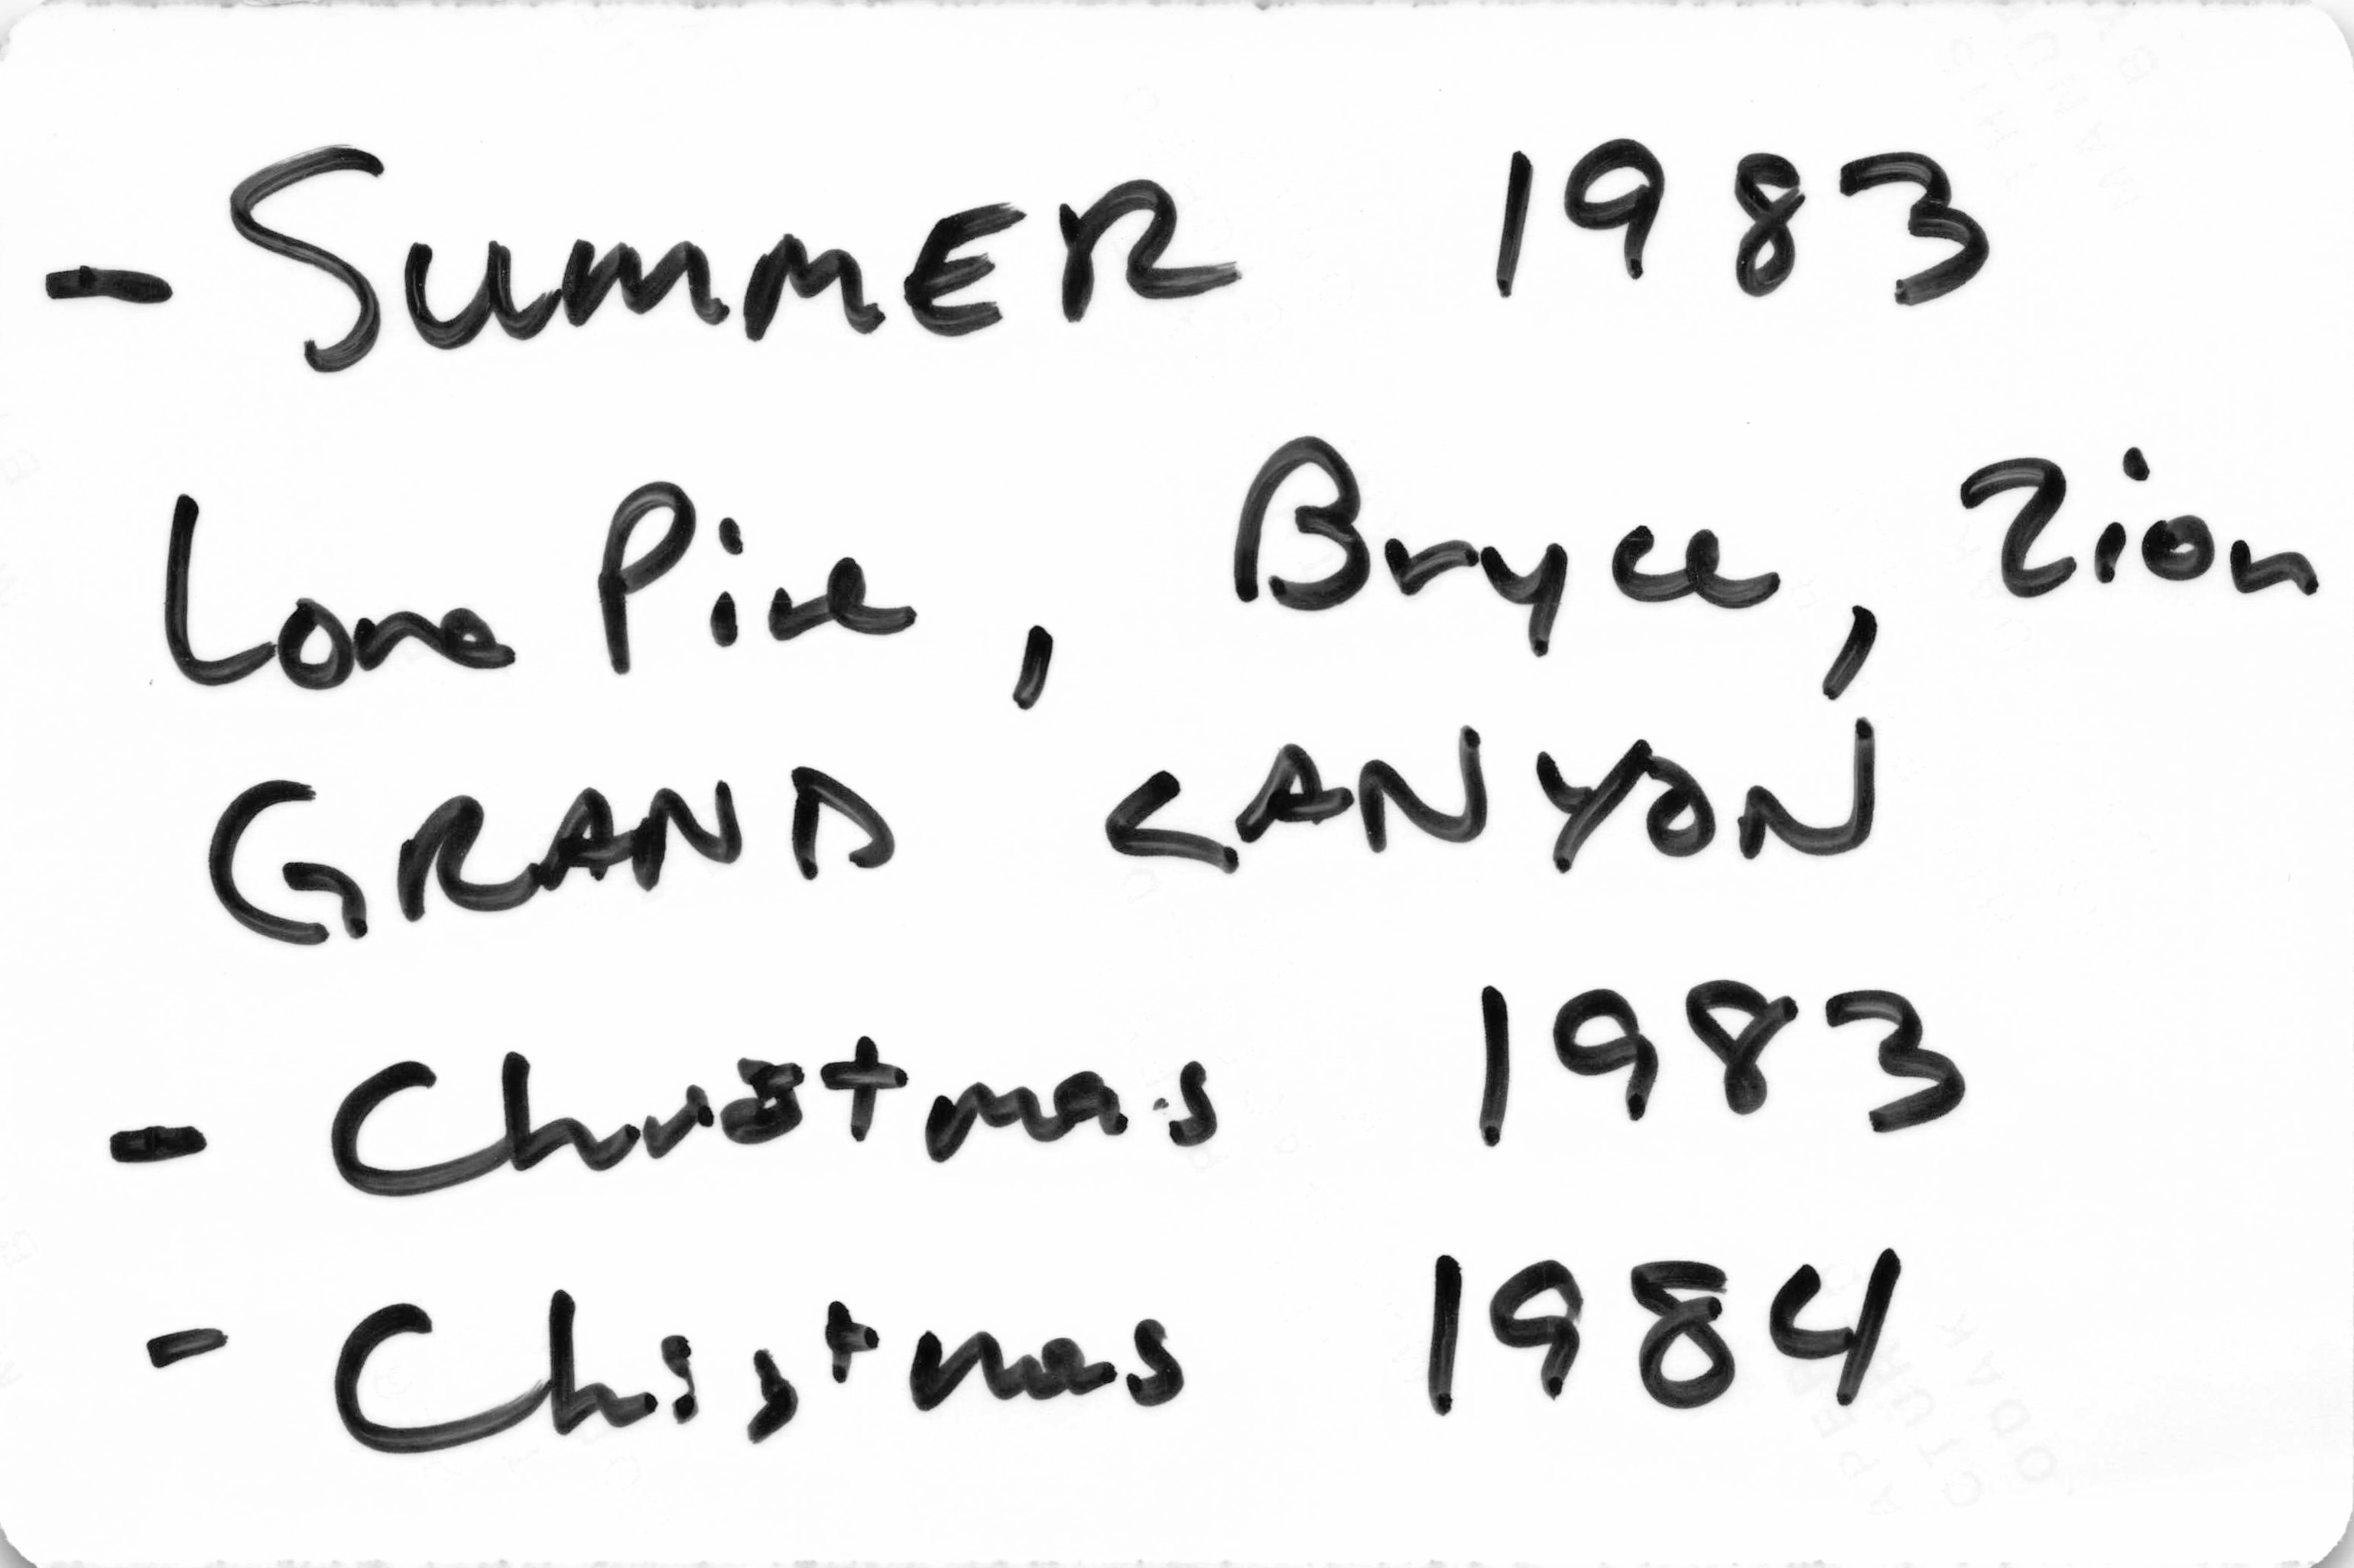 - SUMMER 1983
Lone Pine, Bryce, Zion
GRAND CANYON
- Christmas 1983
- Chistmas 1984